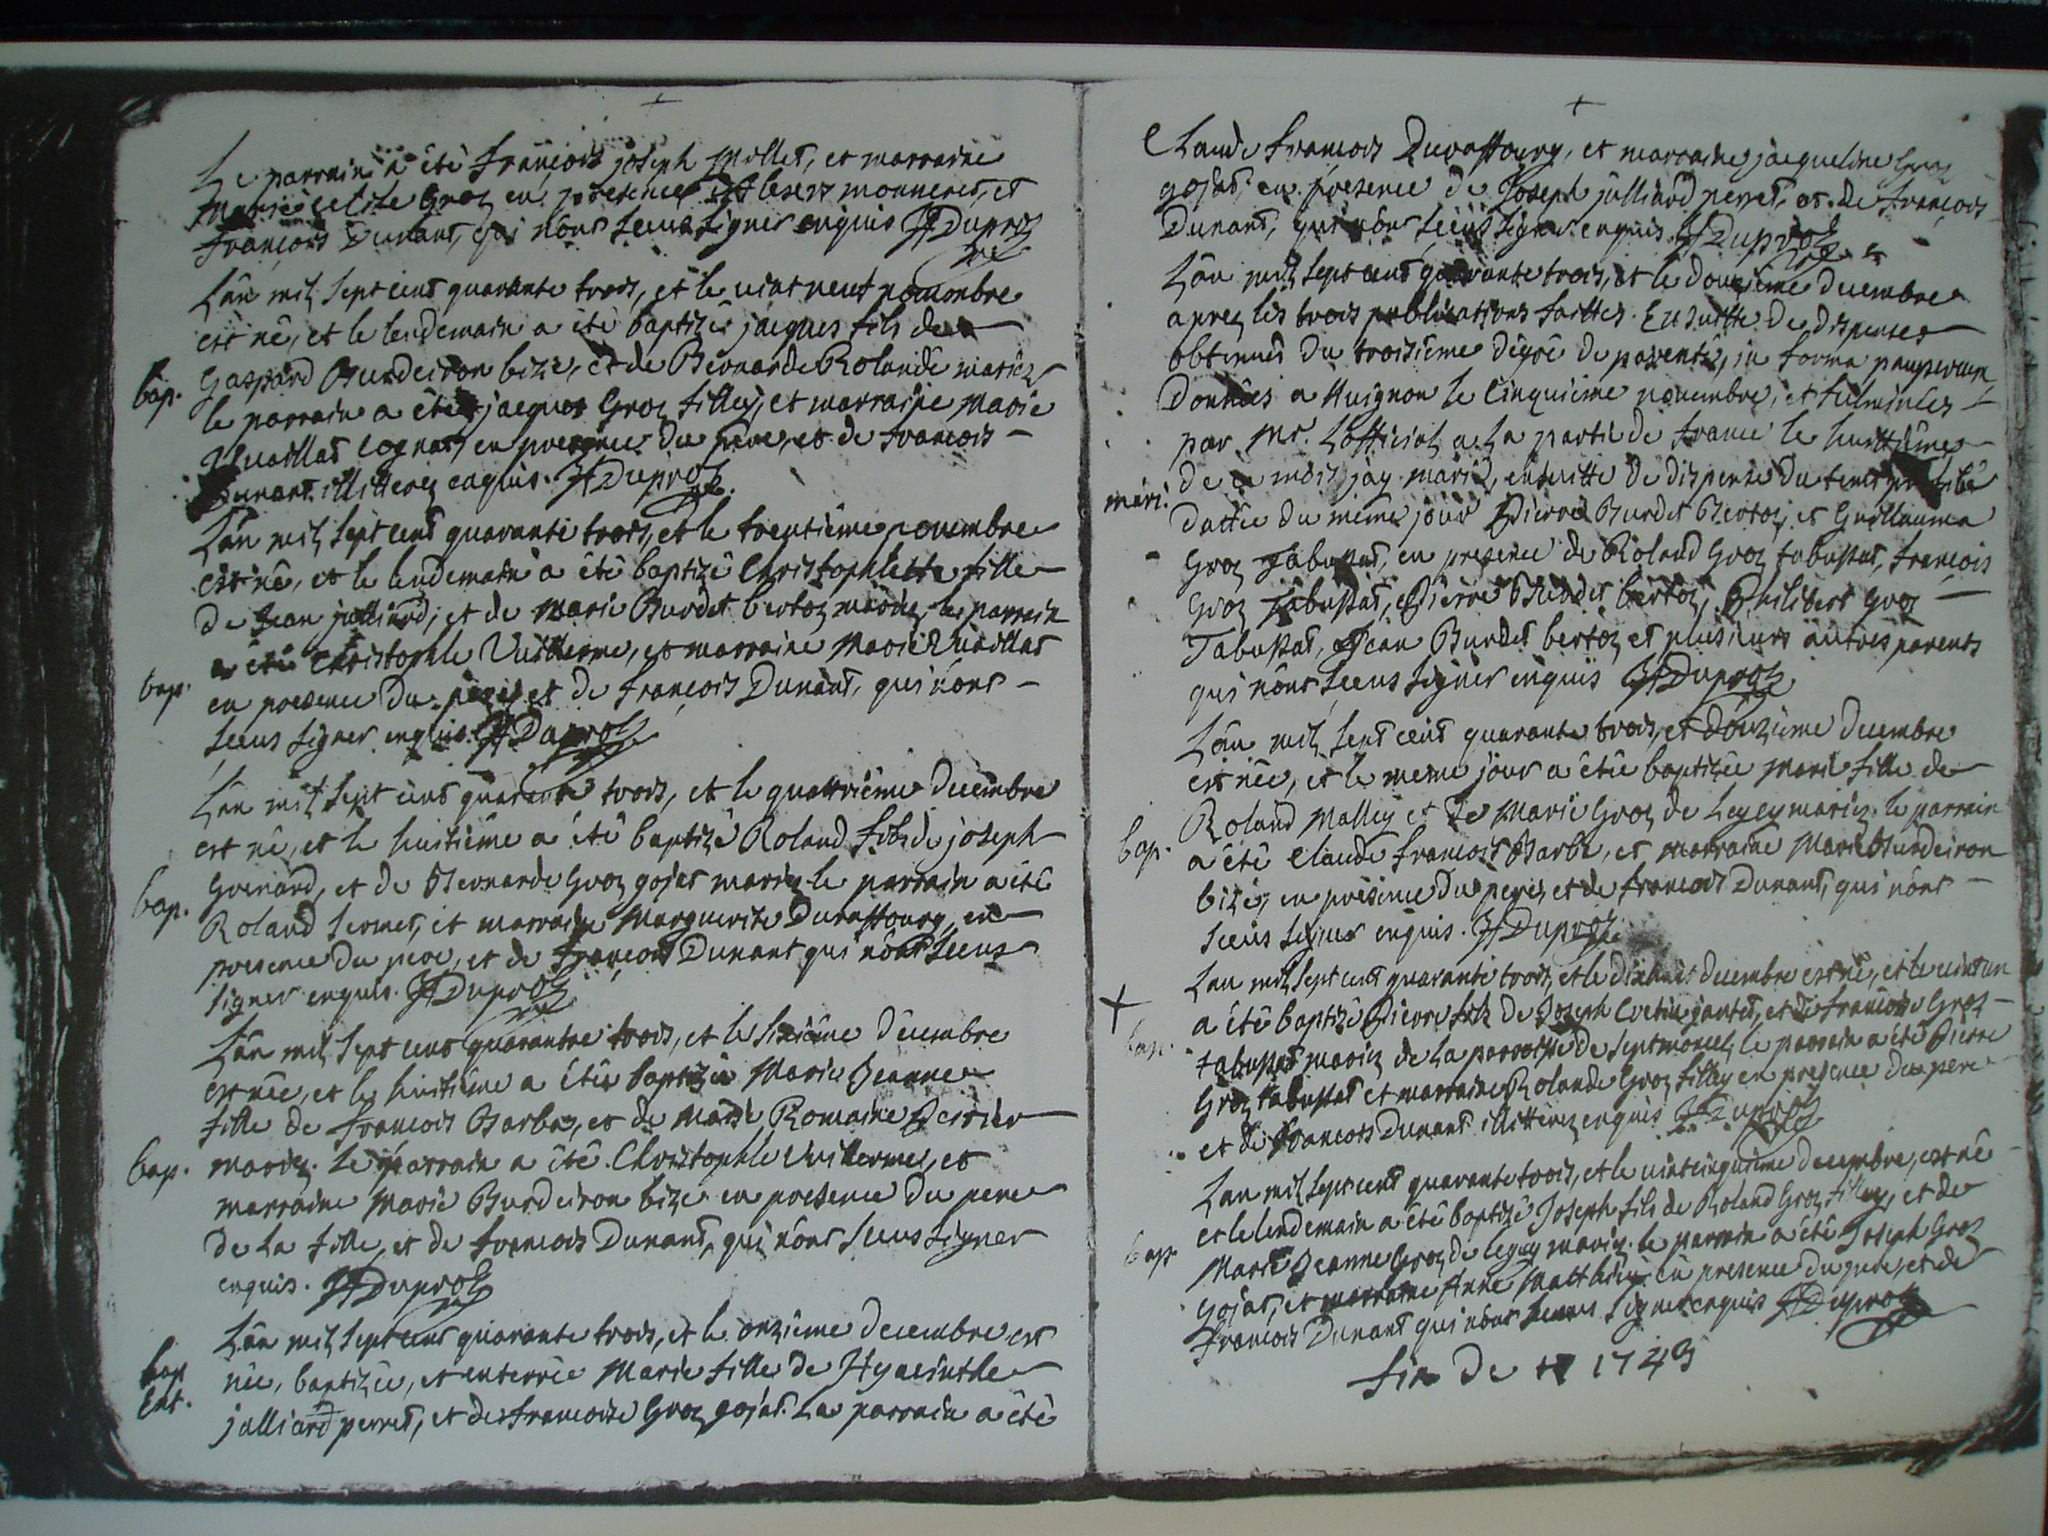 Le parrain a êté françois joseph Millet, et marraine
Marie Groz en presence et
françois Dunant, qui n'ont sceus signer enquis JfDuproz
L'ân mil sept cent quarante trois, et le vint neuf novembre
est né, et le lendemain a êté baptizé jacques fils de
bap. Gaspard Burdeiron bize, et de Bernarde Rolande mariez
le parrain a êté jacques Groz filley, et marraine Marie
Vuaillat cognat, en presence du pere, et de francois
Dunant illitterez enquis. JfDuproz
L'ân mil sept cent quarante trois, et le trentiême novembre
est né, et le lendemain a êté baptizé Christophlette fille
de Jean julliard, et de Marie Burdet bertoz mariez, le parrain
a êté Christophle Vuillerme, et marraine Marie Vuaillat
bap. en presence du pere, et de françois Dunant, qui n'ont
sceus signer enquis. JfDuproz
L'ân mil sept cent quarante trois, et le quattriême decembre
est né, et le huitiême a êté baptizé Roland fils de joseph
bap. Grenard, et de Bernarde Groz gojat mariez le parrain a êté
Roland Sermet, et marraine Marguerite Duraffourg, en
presence du pere, et de françois Dunant qui n'ont sceus
signer enquis. JfDuproz
L'ân mil sept cent quarantre trois, et le sixiême decembre
est née, et le huitiême a êtée baptizée Marie Jeanne
fille de francois Barbe, et de Marie Romaine Perrier
bap. mariez. le parrain a êté Christophle Vuillerme, et
marraine Marie Burdeiron bize en presence du pere
de la fille, et de francois Dunant, qui n'ont sceus signer
enquis. JfDuproz
L'ân mil sept cent quarante trois, et le onziême decembre est
bap née, baptizée, et enterrée Marie fille de Hyacinthe
Ent. julliard perret, et de francoise Groz gojat. Le parrain a êté
Claude francois Duraffourg, et marraine jacqueline Groz
gojat, en presence de Joseph julliard perret, et de françois
Dunant, qui n'ont sceus signer enquis. JfDuproz
L'ân mil sept cent quarante trois, et le douziême decembre
aprez les trois publications faittes. Ensuitte de dispenses
obtenues du troisiême dêgré de parenté, in forma pauperum,
données a Avignon le cinquiême novembre, et fulminées
par Mr. L'official a la partie de france le huittiême
de ce mois j'ay marié, ensuitte de dispense du tems prohibé
mari. dattée du même jour Pierre Burdet Bertoz, et Guillauma
Groz Tabussat, en presence de Roland Groz tabussat, françois
Groz tabussat, Pierre Burdet bertoz, Philibert Groz
Tabussat, Jean Burdet bertoz et plusieurs autres parents
qui n'ont sceus signer enquis JfDuproz
L'ân mil sept cent quarante trois, et douziême decembre
est née, et le même jour a êtée baptizée Marie fille de
Roland Malley et de Marie Groz de Legey mariez. le parrain
bap. a êté Claude francois Barbe, et marraine Marie Burdeiron
bize, en presence du pere, et de francois Dunant, qui n'ont
sceus signer enquis. JfDuproz
L'an mil sept cent quarante trois, et le dixhuit decembre est né, et le vint un
bap. a êté baptizé Pierre fils de Joseph Cretin jantet, et de francoise Groz
tabussat mariez de la parroisse de septmoncel, le parrain a êté Pierre
Groz tabussat et marraine Rolande Groz filley en presence du pere
et de francois Dunant illitterez enquis JfDuproz
L'an mil sept cent quarante trois, et le vintcinquiême decembre, est né
et le lendemain a êté baptizé Joseph fils de Roland Groz filley, et de
bap. Marie Jeanne Groz de legey mariez. le parrain a êté Joseph Groz
gojat, et marraine Anne en presence du pere, et de
francois Dunant qui n'ont sceus signer enquis JfDuproz
fin de 1743